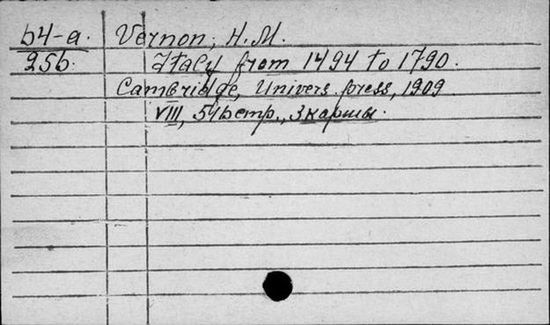 b4-a. Vernon, H.M.
256. Italy from 1494 to 1790.
Cambridge, Univers. press, 1909
VIII, 516 стр., 3 карты.